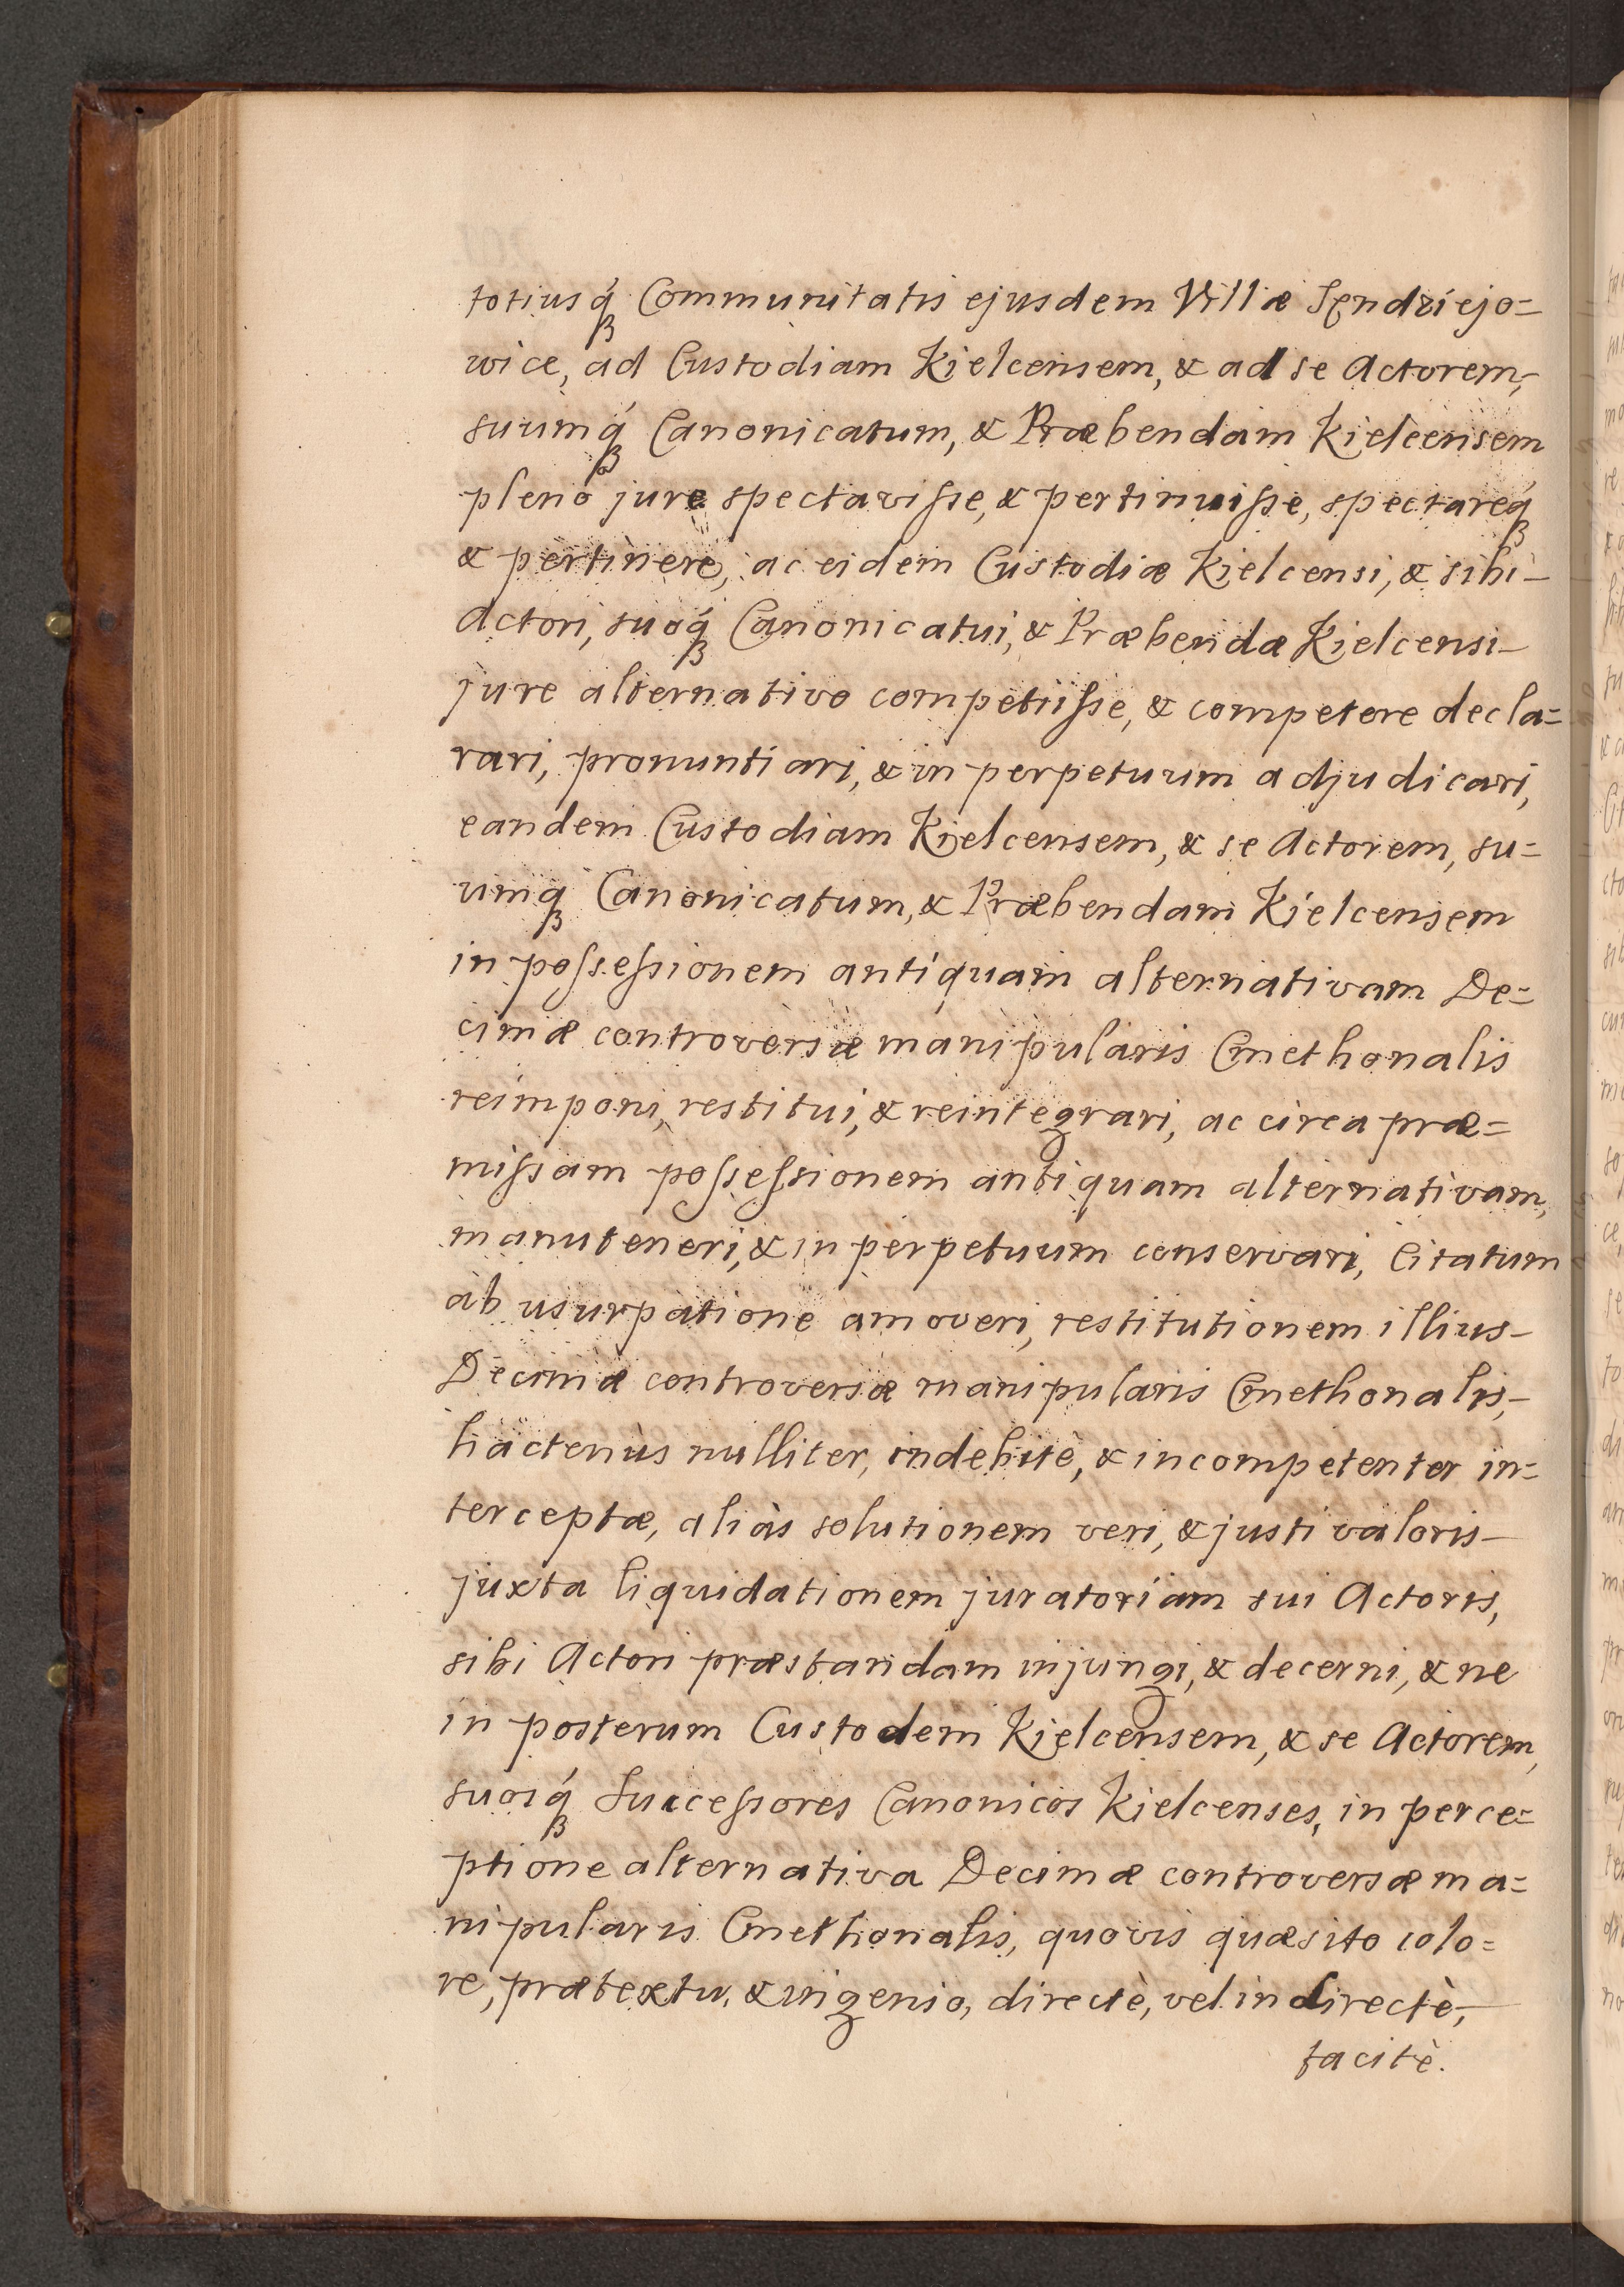 totiusq́ꝫ Communitatis ejusdem Villæ Sęndziejo=
wice, ad Custodiam Kielcensem, & ad se Actorem,
suumq́ꝫ Canonicatum, & Præbendam Kielcensem
pleno jure spectavisse, & pertinuisse, spectareq́ꝫ
& pertinere, ac eidem Custodiæ Kielcensi, & sibi
Actori, suoq́ꝫ Canonicatui, & Præbendæ Kielcensi
jure alternativo competiisse, & competere decla=
rari, pronuntiari, & in perpetuum adjudicari,
eandem Custodiam Kielcensem, & se Actorem, su=
umqꝫ Canonicatum, & Præbendam Kielcensem
in possessionem antiquam alternativam De=
cimæ controversæ manipularis Cmethonalis
reimponi, restitui, & reintegrari, ac circa præ=
missam possessionem antiquam alternativam,
manuteneri, & in perpetuum conservari, Citatum
ab usurpatione amoveri, restitutionem illius
Decimæ controversæ manipularis Cmethonalis,
hactenùs nulliter, indebitè, & incompetenter in=
terceptæ, aliàs solutionem veri, & justi valoris
juxta liquidationem juratoriam sui Actoris,
sibi Actori præstandam injungi, & decerni, & ne
in posterum Custodem Kielcensem, & se Actorem,
suosq́ꝫ Successores Canonicos Kielcenses, in perce=
ptione alternativa Decimæ controversæ ma=
nipularis Cmethonalis, quovis quæsito colo=
re, prætextu, & ingenio, directè, vel indirectè,
tacitè.